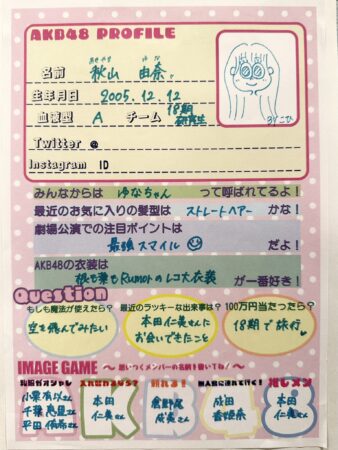 AKB48 PROFILE
名前 秋山 由奈
あきやま ゆな
生年月日 2005.12.12
血液型 A チーム 18期研究生
Twitter @
Instagram ID
みんなからは ゆなちゃん って呼ばれてるよ！
最近のお気に入りの髪型は ストレートヘアー かな！
劇場公演での注目ポイントは
最強スマイル だよ！
AKB48の衣装は
根も葉もRumorのレコ大衣装 が一番好き！
Question
もしも魔法が使えたら？
空を飛んでみたい
最近のラッキーな出来事は？
本田仁美さんにお会いできたこと
100万円当たったら？
18期で旅行
IMAGE GAME ～ 思いつくメンバーの名前を書いてね！～
私服がオシャレ
小栗有以さん
千葉恵里さん
平田侑希さん
入れ替わるなら？
本田仁美さん
頼れる！
倉野尾成美さん
無人島に連れて行く！
成田香姫奈
推しメン
本田仁美さん
AKB48